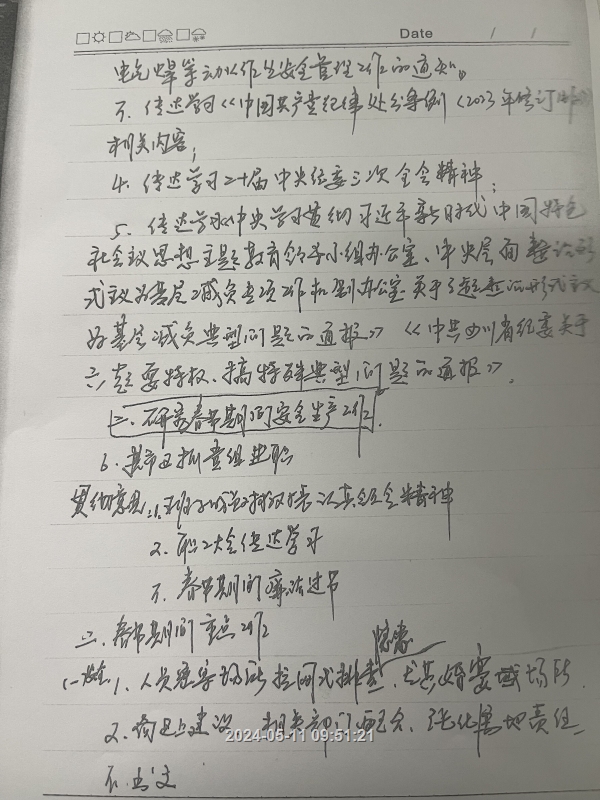 Date / /
电气焊等动火作业安全管理工作的通知。
3. 传达学习《中国共产党纪律处分条例》(2023年修订版)
相关内容;
4. 传达学习二十届中央纪委三次全会精神;
5. 传达学习《中央学习贯彻习近平新时代中国特色
社会主义思想主题教育领导小组办公室、中央层面整治形
式主义为基层减负专项工作机制办公室关于3起整治形式主义
为基层减负典型问题的通报》《中共四川省纪委关于
六起要特权、搞特殊典型问题的通报》。
二. 研究春节期间安全生产工作.
6.
贯彻意见: 1. 认真 全会精神
2. 职工大会传达学习
3. 春节期间廉洁过节
三. 春节期间重点工作
隐患
(一)安全 1. 人员密集场所拉网式排查, 尤其 场所
2. 建设 相关部门配合, 强化属地责任
3.
2024-05-11 09:51:21